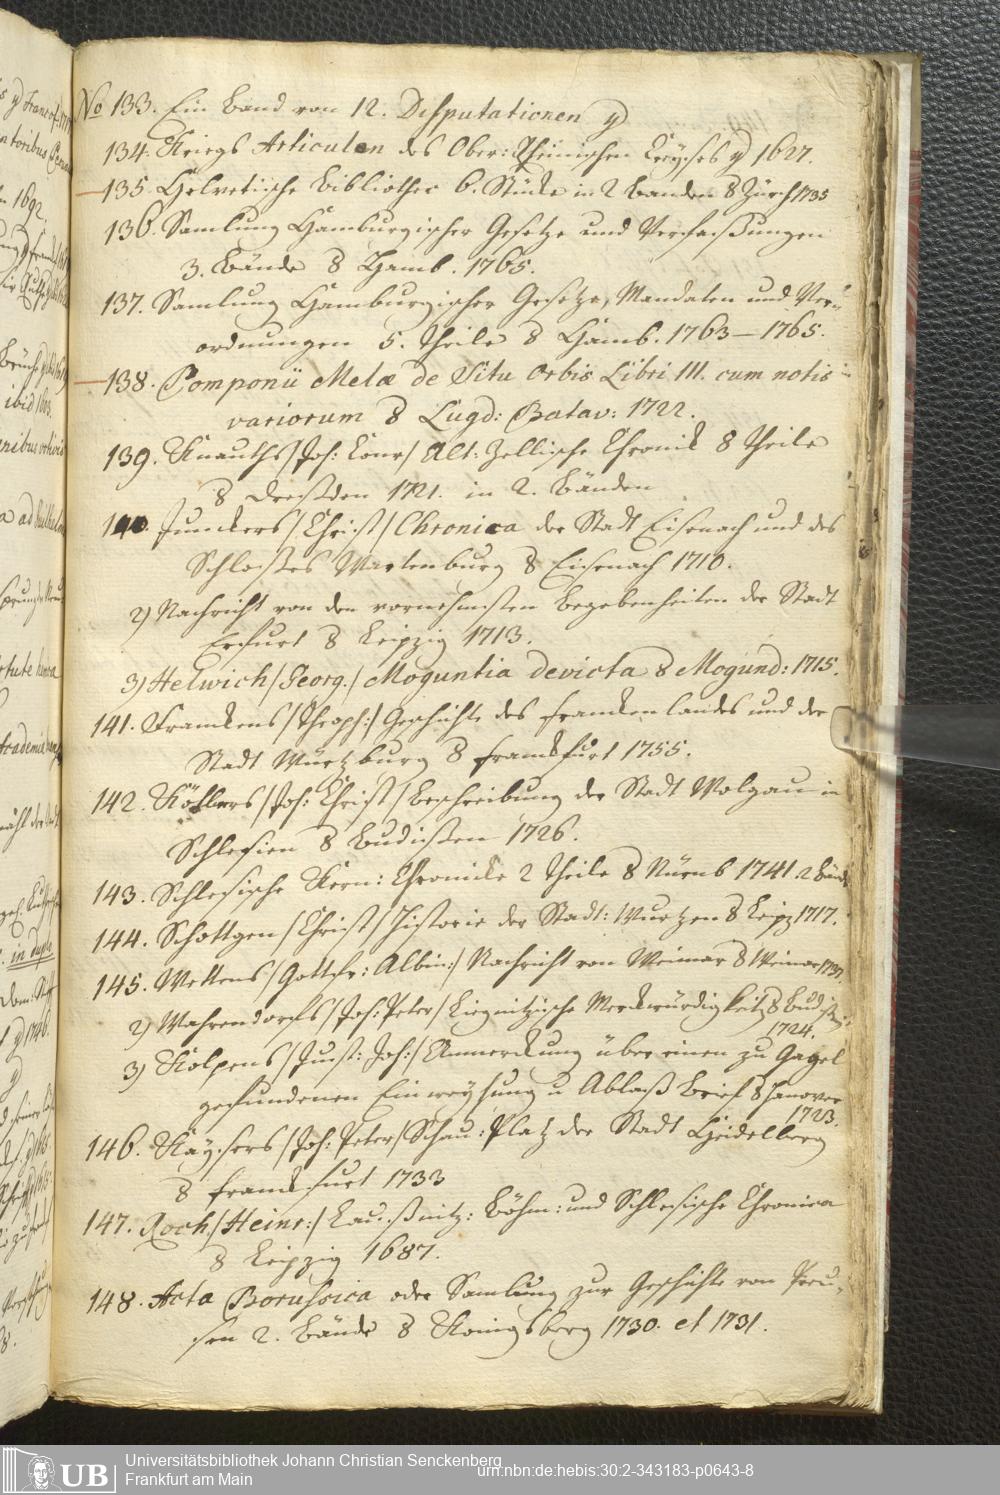 No 133. Ein Band von 12. Disputationen
134. Kriegs Articulen des Ober: Rheinischen Creyses 1627.
135. Helvetische Bibliothec 6. Stücke in 2 Banden 8 Zürch 1735
136. Samlung Hamburgischer Gesetze und Verfassungen
3. Bände 8 Hamb. 1765.
137. Samlung Hamburgischer Gesetze, Mandaten und Ver-
ordnungen 5. Theile 8 Hamb. 1763 — 1765.
138. Pomponii Melæ de Situ Orbis Libri III. cum notis
variorum 8 Lugd: Batav: 1722.
139. Knauths /Joh: Conr/ Alt: Zellische Chronik 8 Theile
8 Dresden 1721. in 2. Bänden
140. Junckers /Christ/ Chronica der Stadt Eisenach und des
Schlosses Wartenburg 8 Eisenach 1710.
2) Nachricht von den vornehmsten Begebenheiten der Stadt
Erfurt 8 Leipzig 1713.
3) Helwich /Georg./ Moguntia devicta 8 Mogund: 1715.
141. Franckens /Theoph:/ Geschichte des Franckenlandes und der
Stadt Würtzburg 8 Franckfurt 1755.
142. Köhlers /Joh: Christ/ Beschreibung der Stadt Wolgau in
Schlesien 8 Budissen 1726.
143. Schlesische Kern: Chronicke 2 Theile 8 Nürnb 1741 2 Bände
144. Schöttgen /Christ/ Historie der Stadt: Wurtzen 8 Leipz 1717.
145. Wettens /Gottfr: Albin:/ Nachricht von Weimar 8 Weimar 1737.
2) Wahrendorfs /Joh: Peter/ Liegnitzische Merckwürdigkeit 8 Budissin
1724.
3) Kolpens /Just: Joh:/ Anmerckung über einen zu Gagel
gefundenen Einweyhung u Ablaß Brief 8 Hanover
1723.
146. Kaysers /Joh: Peter/ Schau: Platz der Stadt Heidelberg
8 Franckfurt 1733
147. Roch /Heinr:/ Laußnitz: Böhm: und Schlesische Chronica
8 Leipzig 1687.
148. Acta Borussica oder Samlung zur Geschichte von Preu-
sen 2. Bände 8 Königsberg 1730. et 1731.
UB
Universitätsbibliothek Johann Christian Senckenberg
Frankfurt am Main
urn:nbn:de:hebis:30:2-343183-p0643-8